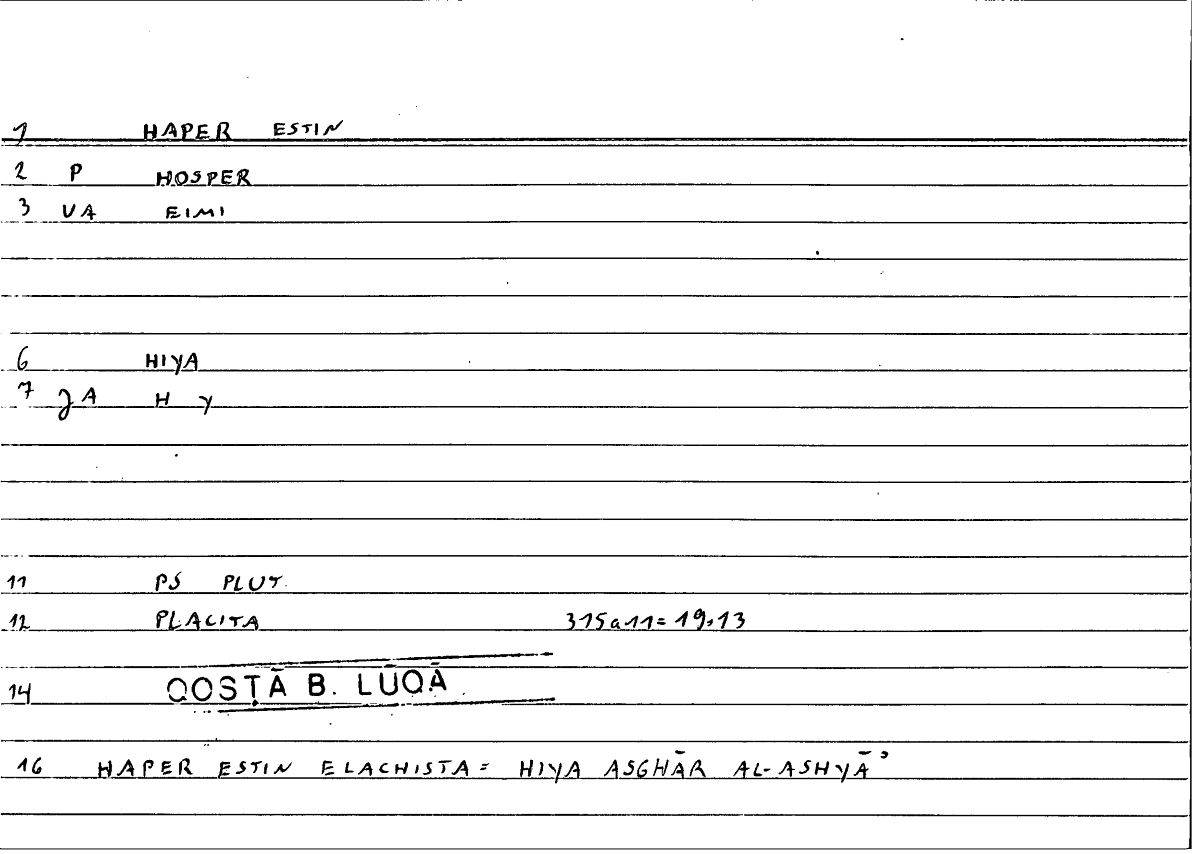 1 HAPER ESTIN
2 P HOSPER
3 VA EIMI
6 HIYA
7 JA H Y
11 PS PLUT.
12 PLACITA 315a11=19,13
14 QOSṬĀ B. LŪQĀ
16 HAPER ESTIN ELACHISTA = HIYA ASGHĀR AL-ASHYĀ’